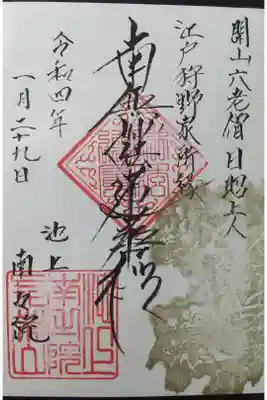 開山六老僧日昭上人
江戸狩野家所縁
南無妙法蓮華経
令和四年
一月二十九日
池上
南之院